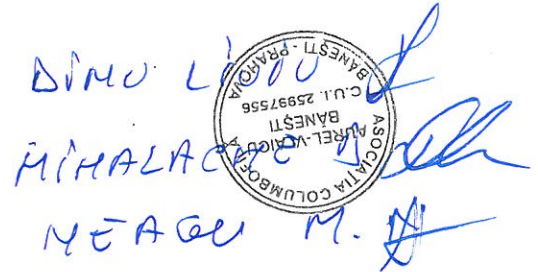 DIMU LIVIU
MIHALACHE
NEAGU M.
ASOCIAȚIA COLUMBOFILĂ
AUREL-VLAICU
BĂNEȘTI
C.U.I. 25997556
BĂNEȘTI - PRAHOVA